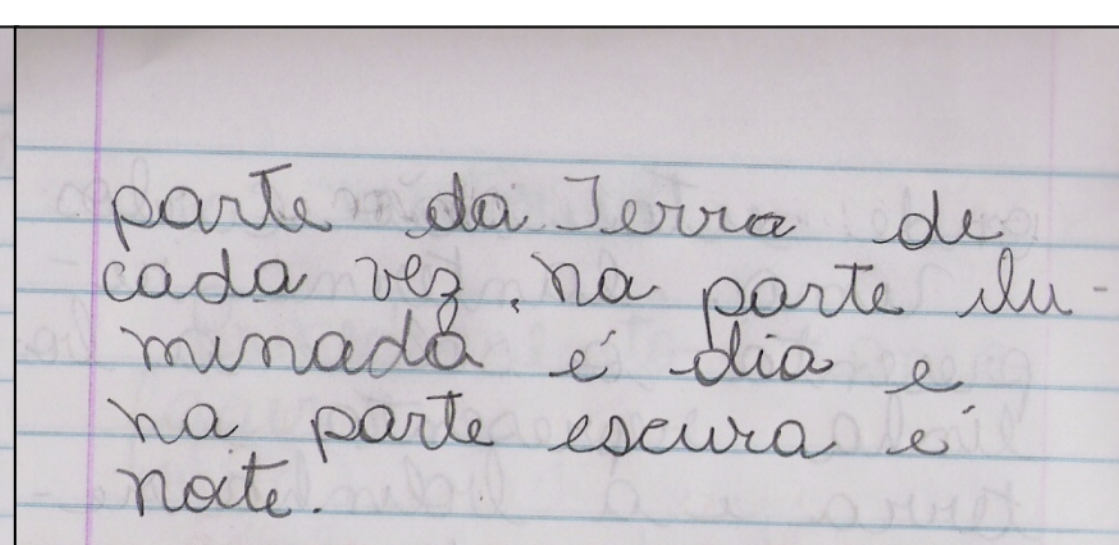 parte da Terra de
cada vez, na parte ilu-
minada é dia e
na parte escura é
noite.